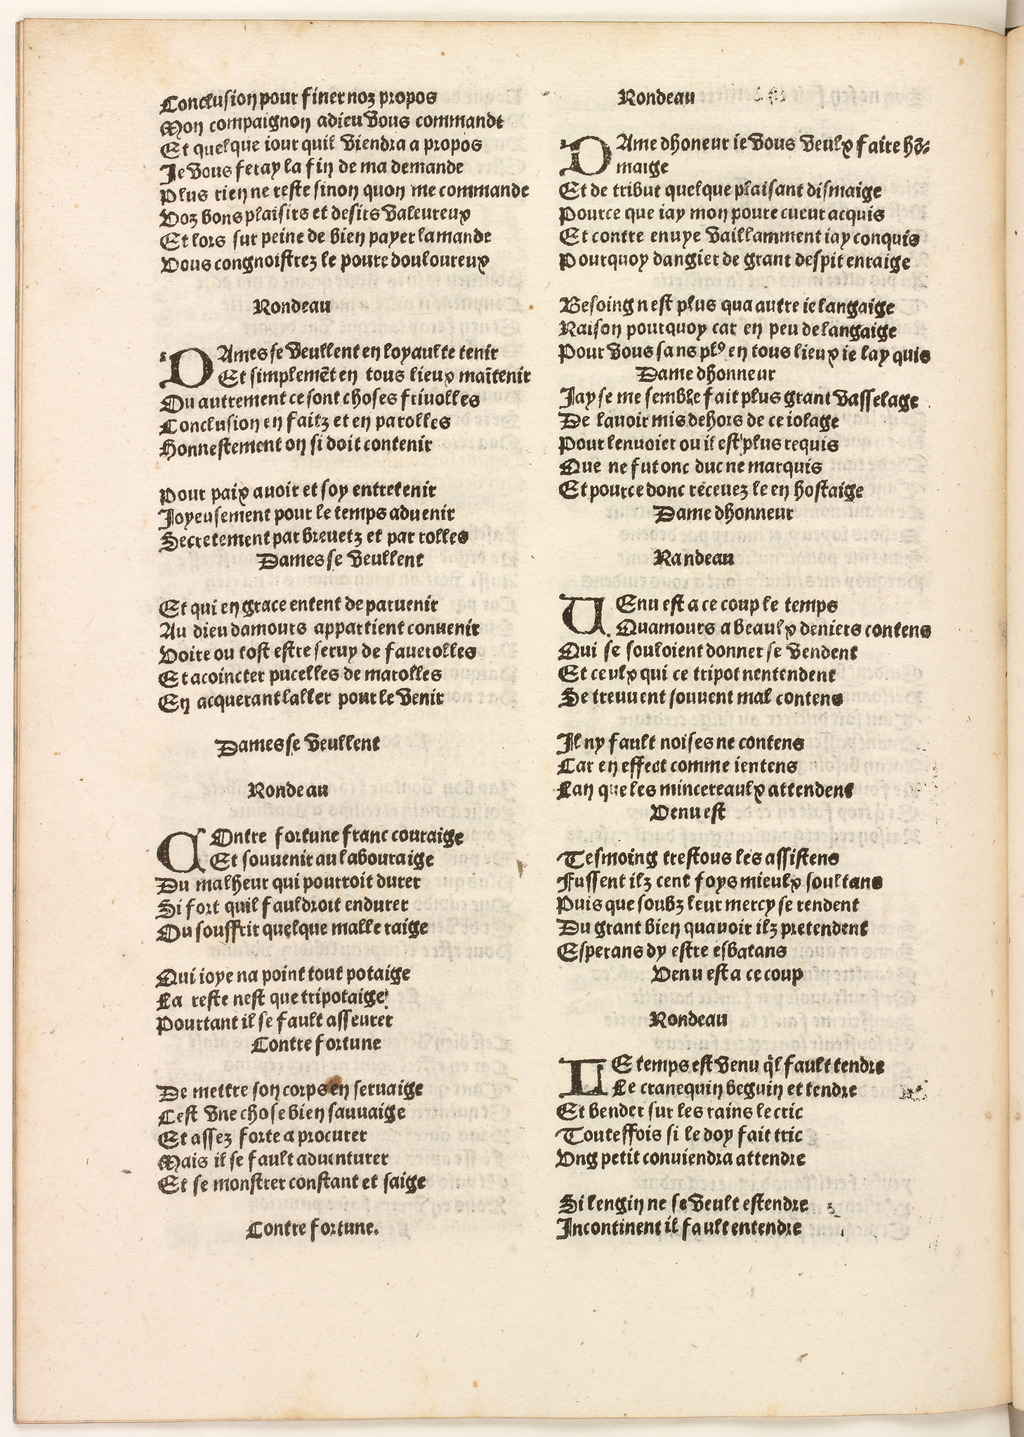 Conclusion pour finer noz propos
Mon compaignon adieu vous commandt
Et quelque iour quil viendra a propos
Je vous feray la fin de ma demande
Plus rien ne reste sinon quon me commande
Voz bons plaisirs et desirs valeureux
Et lors sur peine de bien payer lamande
Vous congnoistrez le poure douloureux
Rondeau
DAmes se veullent en loyaulte tenir
Et simplemẽt en tous lieux maĩtenir
Ou autrement ce sont choses friuolles
Conclusion en faitz et en parolles
Honnestement on si doit contenir
Pour paix auoir et soy entretenir
Joyeusement pour le temps aduenir
Secretement par breuetz et par rolles
Dames se veullent
Et qui en grace entent de paruenir
Au dieu damours appartient conuenir
Voire ou tost estre seruy de fauerolles
Et acoincter pucelles de marolles
En acquerant laller pour le venir
Dames se veullent
Rondeau
COntre fortune franc couraige
Et souuenir au labouraige
Du malheur qui pourroit durer
Si fort quil fauldroit endurer
Ou souffrir quelque malle raige
Qui ioye na point tout potaige
La reste nest que tripotaige
Pourtant il se fault asseurer
Contre fortune
De mettre son corps en seruaige
Cest vne chose bien sauuaige
Et assez forte a procurer
Mais il se fault aduenturer
Et se monstrer constant et saige
Contre fortune.
Rondeau
DAme dhoneur ie vous veulx faire hõ-
maige
Et de tribut quelque plaisant dismaige
Pource que iay mon poure cueur acquis
Et contre enuye vaillamment iay conquis
Pourquoy dangier de grant despit enraige
Besoing nest plus qua autre ie langaige
Raison pourquoy car en peu de langaige
Pour vous sans plꝰ en tous lieux ie lay quis
Dame dhonneur
Jay se me semble fait plus grant vasselage
De lauoir mis dehors de ce iolage
Pour lenuoier ou il est plus requis
Que ne fut onc duc ne marquis
Et pource donc receuez le en hostaige
Dame dhonneur
Randeau
VEnu est a ce coup le temps
Quamours a beaulx deniers contens
Qui se souloient donner se vendent
Et ceulx qui ce tripot nentendent
Se treuuent souuent mal contens
Il ny fault noises ne contens
Car en effect comme ientens
Lan que les mincereaulx attendent
Venu est
Tesmoing trestous les assistens
Fussent ilz cent foys mieulx soultans
Puis que soubz leur mercy se rendent
Du grant bien quauoir ilz pretendent
Esperans dy estre esbatans
Venu est a ce coup
Rondeau
LE temps est venu q̃l fault tendre
Le cranequin beguin et tendre
Et bender sur les rains le cric
Touteffois si le doy fait tric
Vng petit conuiendra attendre
Si lengin ne se veult estendre
Incontinent il fault entendre